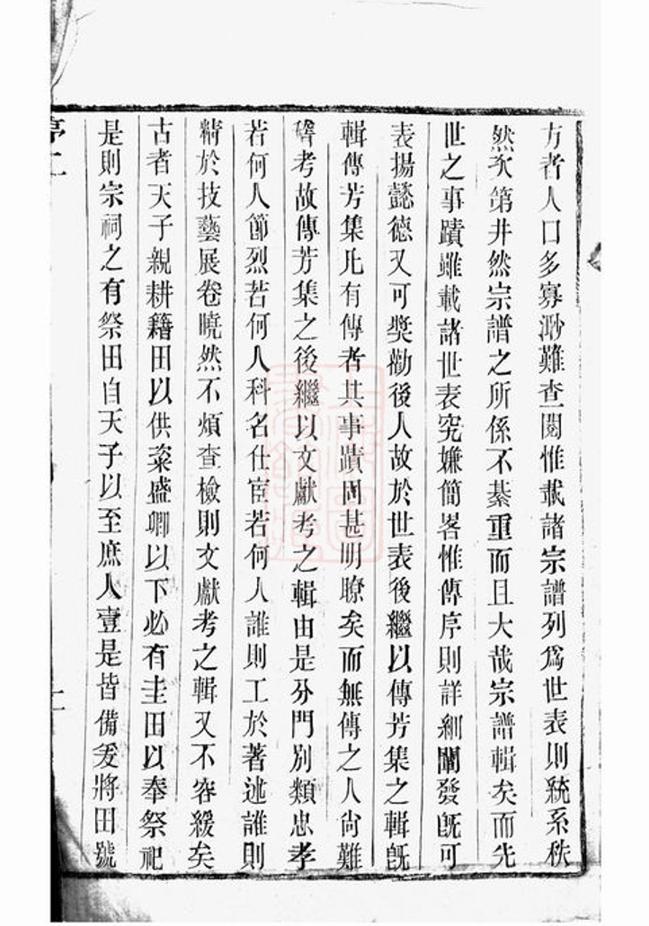 方者人口多寡渺難查閱惟載諸宗譜列爲世表則統系秩
然次第井然宗譜之所係不綦重而且大哉宗譜輯矣而先
世之事蹟雖載諸世表究嫌簡畧惟傳序則詳細闡發旣可
表揚懿德又可奬勸後人故於世表後繼以傳芳集之輯旣
輯傳芳集凡有傳者其事蹟固甚明瞭矣而無傳之人尙難
聲考故傳芳集之後繼以文獻考之輯由是分門別類忠孝
若何人節烈若何人科名仕宦若何人誰則工於著述誰則
精於技藝展卷曉然不煩查檢則文獻考之輯又不容緩矣
古者天子親耕籍田以供粢盛卿以下必有圭田以奉祭祀
是則宗祠之有祭田自天子以至庶人壹是皆備爰將田號